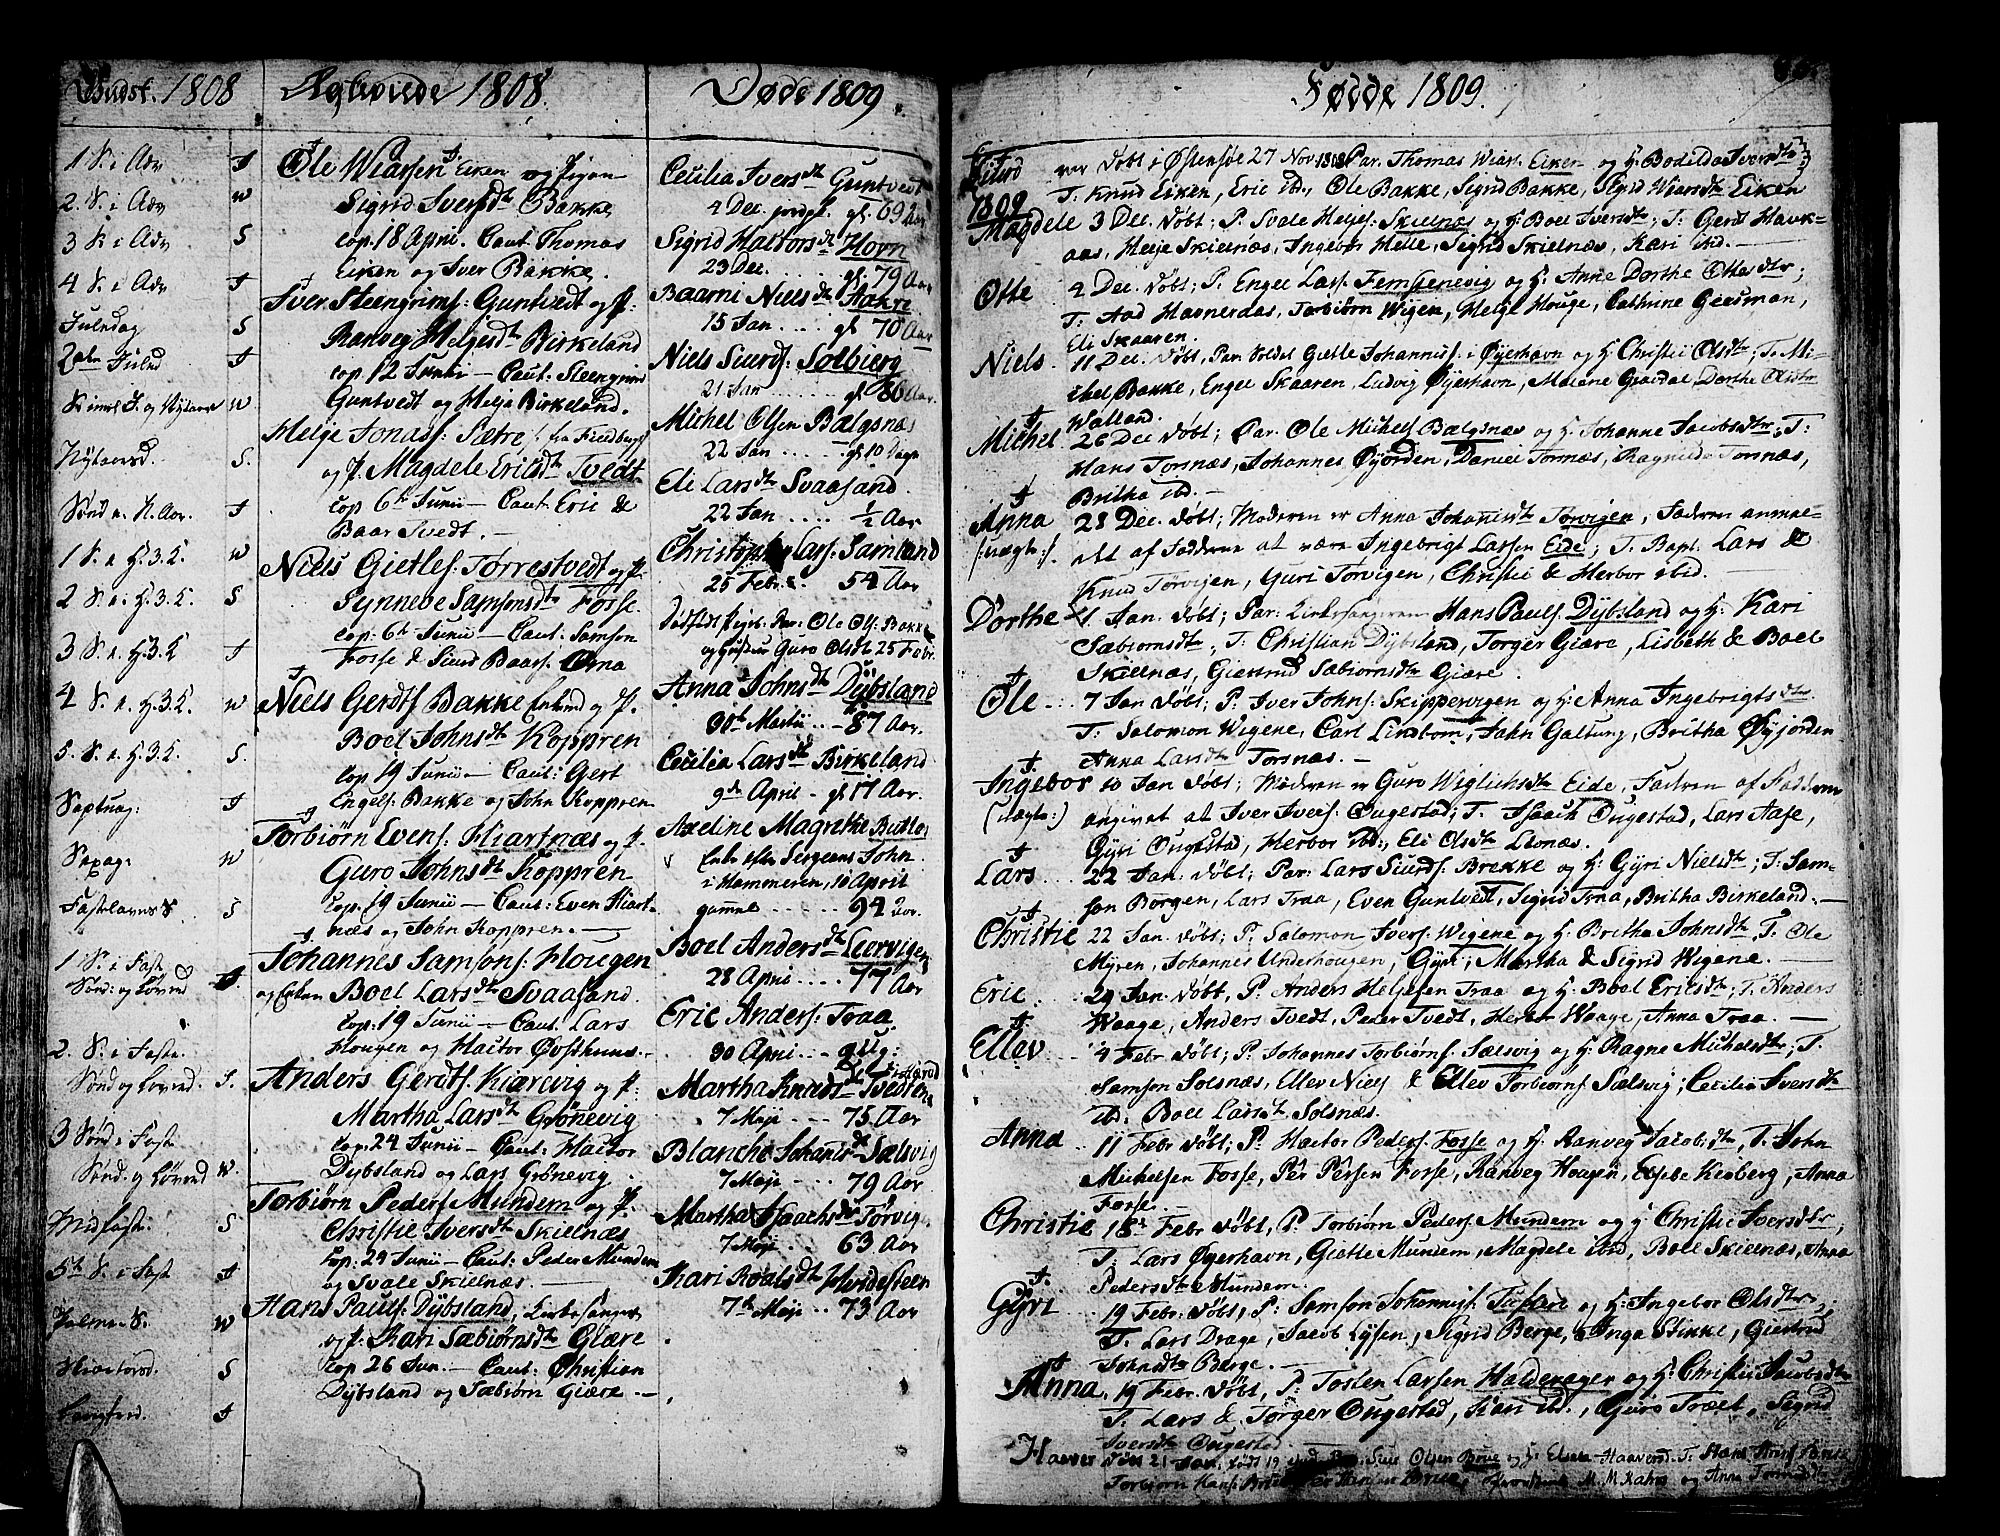 Gudst. 1808
1 S. i Adv J
2. S. i Adv W
3 S. i Adv S
4 S. i Adv J
Juledag S
2den Juled J
W
Nytaarsd. S.
Sønd e. N. Aar. J
1 S. e H. 3. K. W
2 S. e. H. 3. K. S
3 S. e. H. 3. K J
4 S. e. H. 3. K. W
5. S. e. H. 3. K S.
Septuag: J
Sexag: W
Fastelavns S S
1 S. i Fast
Sønd: og Lovred J.
2. S. i Faste.
Sønd og Lovred. S.
3 Sønd i Fast
Sønd. og Lovred W.
Midfaste: S
5te S. i Fast J
Palme S. W
Skiertorsd. S
Langfred. J
Ægteviede 1808
Ole Wiarsen Eiken og Pigen
Sigrid Iversdtr Bakke
Cop. 18 April. Caut. Thomas
Eiken og Iver Bakke.
Iver Steengrims: Guntvedt og P:
Ranveg Helgesdtr Birkeland
Cop. 12 Junii — Caut: Steengrim
Guntvedt og Helje Birkeland.
Helje Jonass: Sætre /: fra
og P. Magdele Ericsdtr Tvedt
Cop. 6te Junii — Caut Eric &
Baar Tvedt. —
Niels Gietles: Torrestvedt og P.
Synneve Samsonsdtr Fosse
Cop: 6te Junii — Caut: Samson
Fosse & Siurd Baars. Orna
Niels Gerdts Bakke Enkmd og P.
Boel Johnsdtr Koppren
Cop 19 Junii — Caut: Gert
Engels. Bakke og John Koppren
Torbiørn Evens: Hiartnæs og P.
Guro Johnsdtr Koppren
Cop: 19 Junii — Caut: Even Hiart-
næs og John Koppren. —
Johannes Samsons: Hougen
og Enken Boel Larsdtr Svaasand.
Cop: 19 Junii — Caut. Lars
Hougen og Hactor Øvsthuus.
Anders Gerdts. Kiærevig og P:
Martha Larsdtr Grønevig
Cop. 24 Junii — Caut: Hactor
Dybsland og Lars Grønevig.
Torbiørn Peders: Mundem og P.
Christie Iversdtr Skielnæs
Cop: 29 Junii — Caut: Peder Mundem
og Svale Skielnæs. —
Hans Pauls: Dybsland, Kirkesanger
og P: Kari Sæbiørnsdtr Giære
Cop 26 Jun. — Caut: Christian
Dybsland og Sæbiørn Giære. —
Døde 1809.
Cecilia Iversdtr Guntvedt
4 Dec. jordf. gl. 69 Aar
Sigrid Hactorsdtr Hovn
23 Dec. gl. 79 Aar
Baarni Nielsdtr Aakre
15 Jan .... gl 70 Aar
Niels Siurds: Solbierg
21 Jan ...... gl 86 Aar.
Michel Olsen Bælgsnæs
22 Jan ..... gl 10 Dage
Eli Larsdtr Svaasand.
22 Jan .... ½ Aar
Christopher Lars: Samland
25 Febr: 54 Aar
Dødfødt Pigeb. Par: Ole Ols: Bakke
og Hustru Guro Olsdtr 25 Febr.
Anna Johnsdtr Dybsland
30te Martii — 87 Aar.
Cecilia Larsdtr Birkeland
9de April — gl 17 Aar.
Axeline Magrethe Butler
Enke efter Sergeant John
i Hammeren, 16 April
gammel ..... 94 Aar.
Boel Andersdtr Leervigen
28 April .... 77 Aar
Eric Anders: Traa
30 April ... 9 Ug:
Martha Knudsdtr Tvedten
7 Maji --- 75 Aar
Blanche Johannisdtr Sælsvig
7 Maji --- 79 Aar
Martha Isaachsdtr Tørvig
7 Maji .. 63 Aar
Kari Roalsdtr Hvidesteen
7te Maji .. 73 Aar
Fødte 1809.
Eilerd var døbt i Østensøe 27 Nov 1808 Par. Thomas Wiars. Eiken og H. Bodilda Iversdtr
T: Knud Eiken, Eric ibd, Ole Bakke, Sigrid Bakke, Sigrid Wiarsdtr Eiken
1809
Magdele 3 Dec. døbt; P. Svale Heljes: Skielnæs og H: Boel Iversdtr; T. Gerdt Hauk-
aas, Helje Skielnæs, Ingebor Helle, Sigrid Skielnæs, Kari ibd. —
Otte 4 Dec. døbt; P. Engel Lars. Femsteinevig og H: Anne Dorthe Ottesdtr;
T: Aad Havnerdas, Torbiørn Wigen, Helje Houge, Cathrine Geesman,
Eli Skaaren.
Niels 11 Dec. døbt, Par. Soldat Gietle Johannis: i Øyerhavn og H. Christie Olsdtr; T. Mi-
chel Bakke, Engel Skaaren, Ludvig Øyerhavn, Marene Gravdal, Dorthe Olsdtr
Walland.
Michel 26 Dec døbt; Par. Ole Michels Bælgsnæs og H. Johanne Jacobsdtr; T:
Hans Torsnæs, Johannes Øyjorden, Daniel Torsnæs, Ragnilde Torsnæs,
Britha ibd. —
Anna 28 Dec. døbt; Moderen er Anna Johannisdtr Tørvigen, Faderen anmel-
/:uægte:/. det af Fadderne at være Ingebrigt Larsen Eide; T. Bapt. Lars &
Knud Tørvigen, Guri Tørvigen, Christie & Herbor ibid. —
Dorthe 1. Jan. døbt; Par: Kirkesangeren Hans Pauls. Dybsland og H: Kari
Sæbiørnsdtr, T: Christian Dybsland, Torger Giære, Lisbeth & Boel
Skielnæs, Giertrud Sæbiørnsdtr Giære.
Ole 7 Jan døbt; P: Iver Johns: Skippervigen og H: Anna Ingebrigtsdtr
T: Salomon Wigene, Carl Lindbom, Jahn Galtung, Britha Øyjorden
Anna Larsdtr Torsnæs. —
Ingebor 10 Jan døbt; Moderen er Guro Wiglichsdtr Eide, Fadren af Fadderne
(uægte:) angivet at Iver Ivers: Ougestad; T. Isaach Ougestad, Lars Aase,
Gyri Ougestad, Herbor ibd:, Eli Olsdtr Leonæs.
Lars 22 Jan. døbt; Par: Lars Siurds: Brekke og H: Gyri Nielsdtr; T: Sam-
son Borgen, Lars Traa, Even Guntvedt, Sigrid Traa, Britha Birkeland. —
Christie 22 Jan. døbt; P. Salomon Ivers: Wigene og H: Britha Johnsdtr, T. Ole
Myren, Johannes Underhougen, Gyri, Martha & Sigrid Wigene. —
Eric 29 Jan. døbt, P. Anders Heljesen Traa og H: Boel Ericsdtr; T. Anders
Waage, Anders Tvedt, Peder Tvedt, Herbor Waage, Anna Traa. —
Ellev 4 Febr døbt; P: Johannes Torbiørns: Sælsvig og H: Ragne Michelsdtr, T.
Samson Solsnæs, Ellev Niels & Ellev Torbiørns: Sælsvig, Cecilia Iversdtr
ibd: Boel Larsdtr Solsnæs.
Anna 11 Febr døbt; P: Hactor Peders: Fosse og H: Ranveg Jacobsdtr, T. John
Michelsen Fosse, Per Persen Fosse, Ranveg Haapen, Elsebe Kieberg, Anna
Fosse. —
Christie 18: Febr døbt, P. Torbiørn Peders: Mundem og H: Christie Iversdtr,
T: Lars Øyerhavn, Gietle Mundem, Magdele ibid, Boel Skielnæs, Anna
Pedersdtr Mundem.
Gyri 19 Febr: døbt, P: Samson Johannis: og H: Ingebor Olsdtr;
T. Lars Drage, Jacob Lysen, Sigrid Berge, Inga Stinke, Giertrud
Johnsdtr Berge. —
Anna 19 Febr. døbt, P: Tosten Larsen Halderager og H: Christie Jacobsdtr
T. Lars & Torger Ougestad, Kari ibd., Guro Træet, Sigrid
Iversdtr Ougestad.
Haaver født 21 Jan, døbt 19 Siur Olsen Brue og H: Haaversd. T. Hans
Torbiørn Hans: M. M. Hahn og Anna